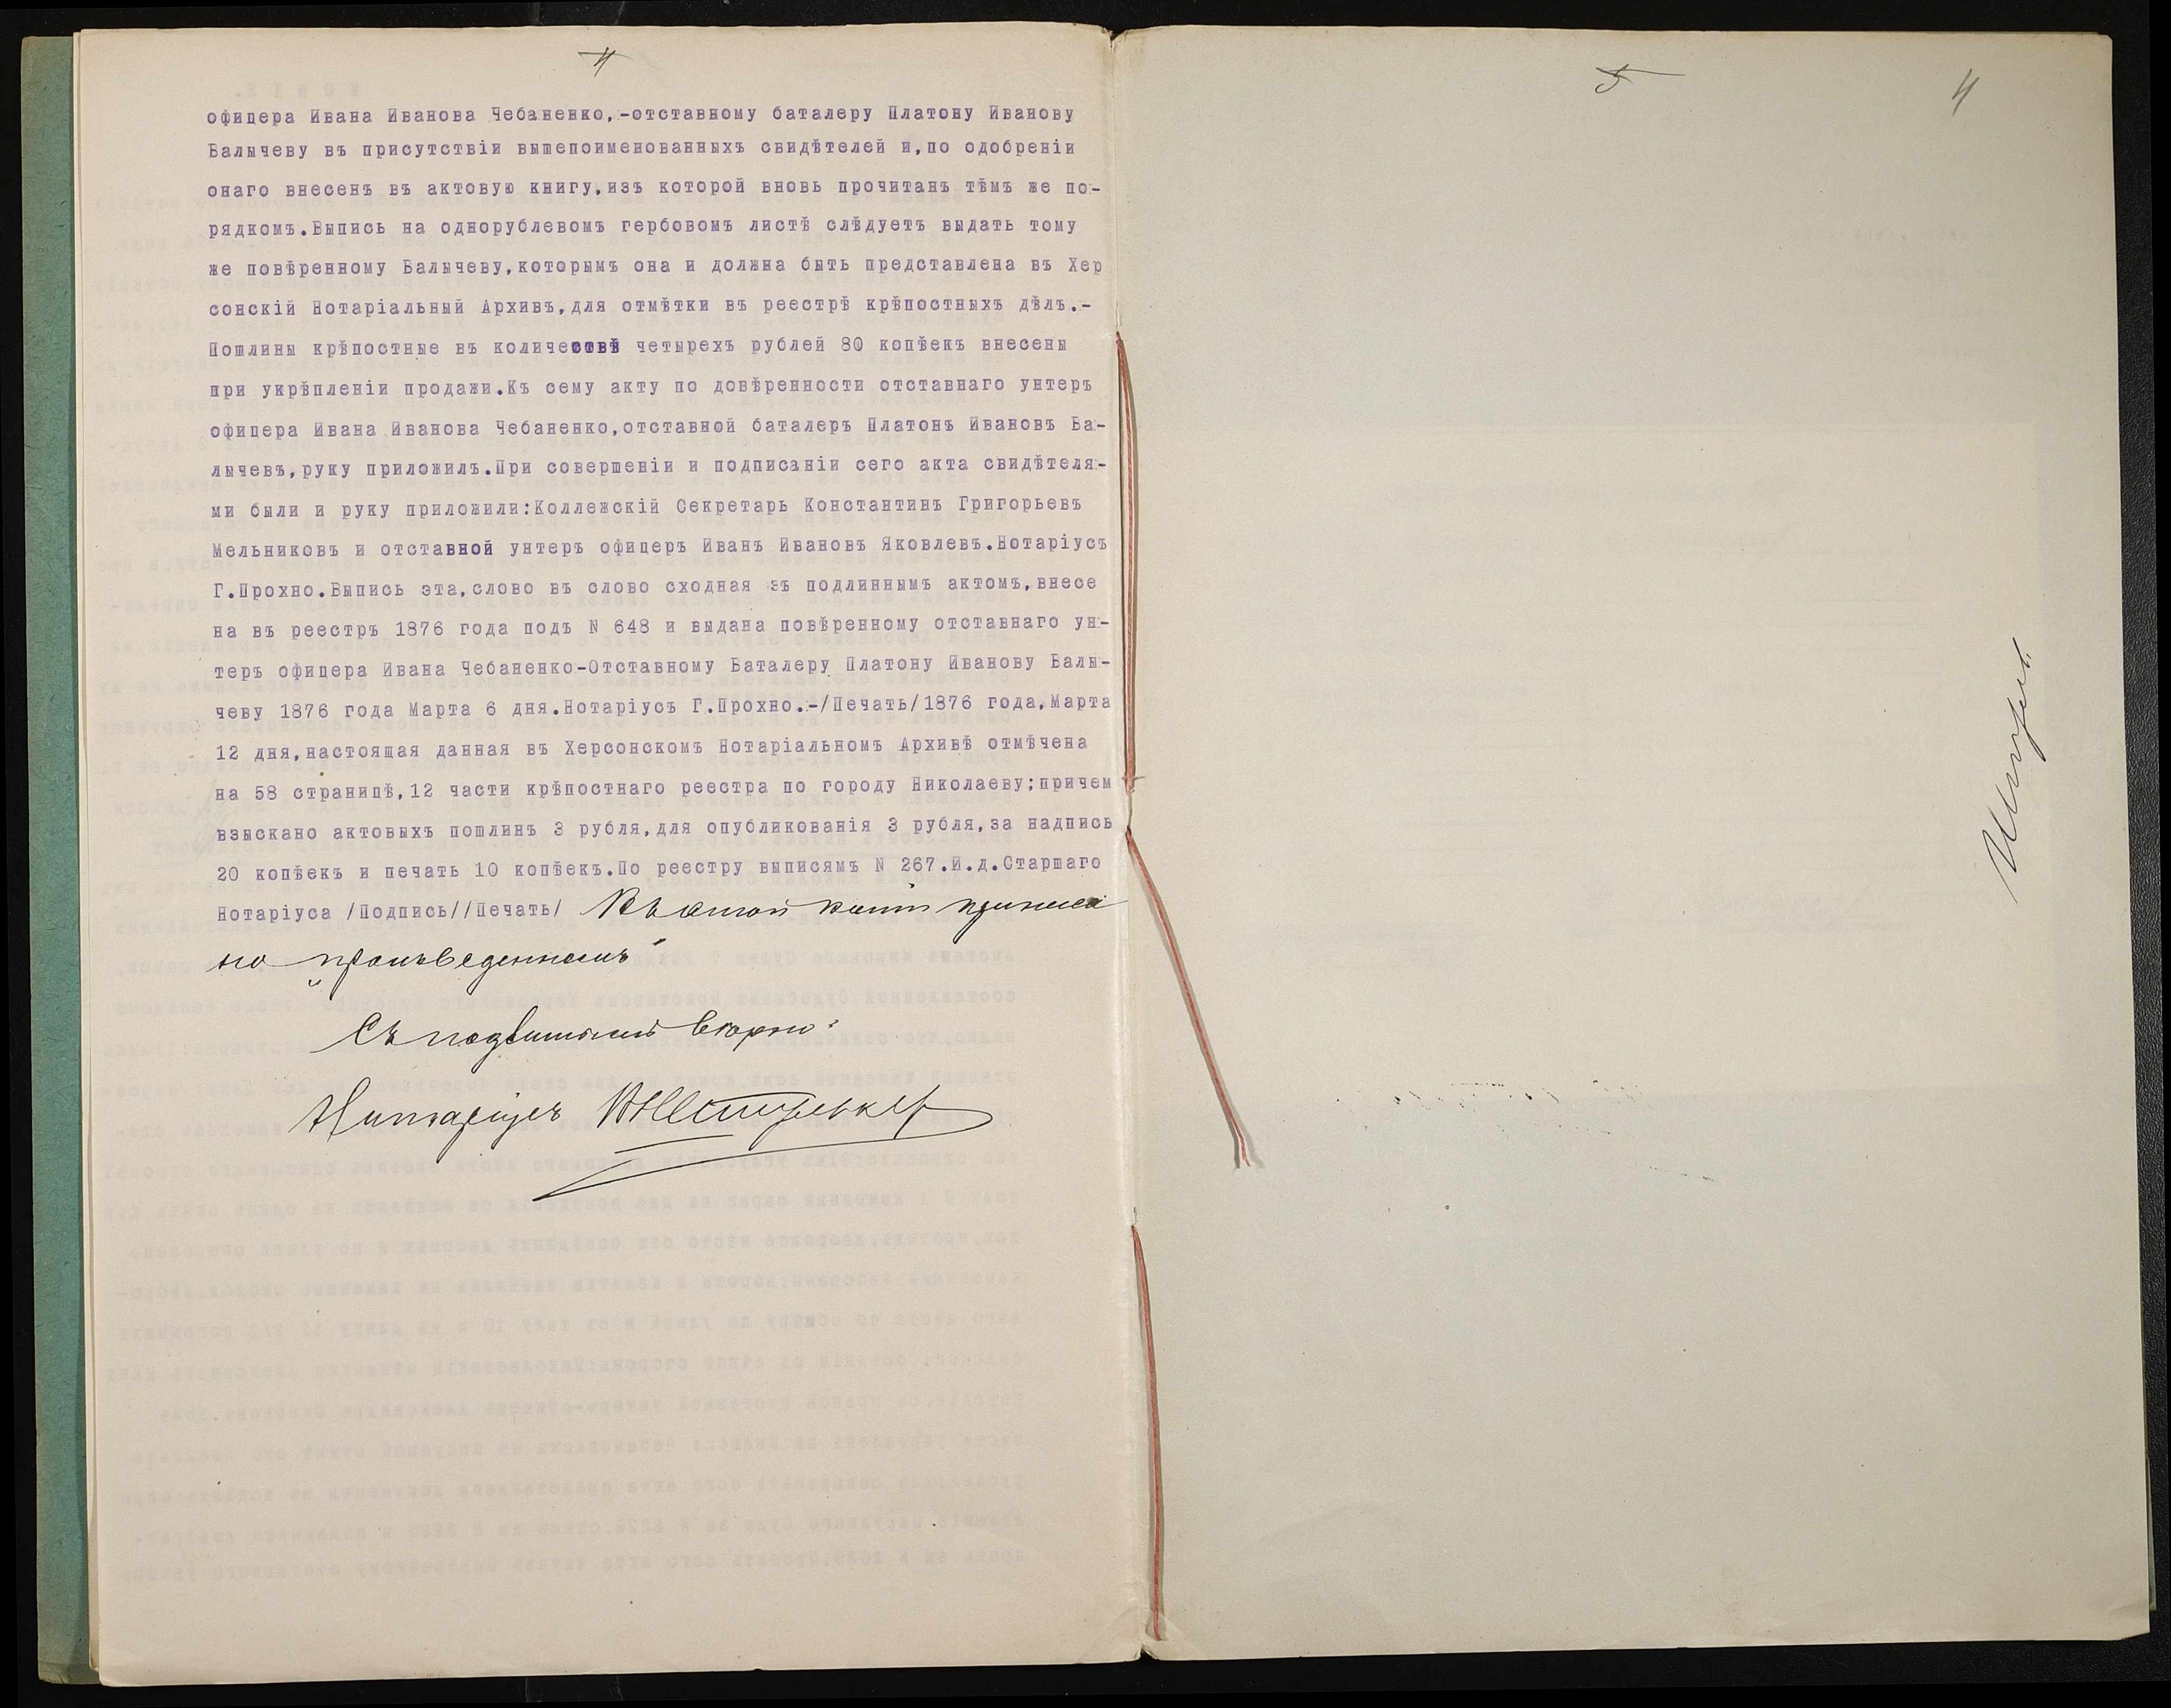 4
офицера Ивана Иванова Чебаненко,-отставному баталеру Платону Иванову
Балычеву въ присутствіи вышепоименованныхъ свидѣтелей и,по одобреніи
онаго внесенъ въ актовую книгу,изъ которой вновь прочитанъ тѣмъ же по-
рядкомъ.Выпись на однорублевомъ гербовомъ листѣ слѣдуетъ выдать тому
же повѣренному Балычеву,которымъ она и должна быть представлена въ Хер
сонскій Нотаріальный Архивъ,для отмѣтки въ реестрѣ крѣпостныхъ дѣлъ.-
Пошлины крѣпостные въ количествѣ четырехъ рублей 80 копѣекъ внесены
при укрѣпленіи продажи.Къ сему акту по довѣренности отставнаго унтеръ
офицера Ивана Иванова Чебаненко,отставной баталеръ Платонъ Ивановъ Ба-
лычевъ,руку приложилъ.При совершеніи и подписаніи сего акта свидѣтеля-
ми были и руку приложили:Коллежскій Секретарь Константинъ Григорьевъ
Мельниковъ и отставной унтеръ офицеръ Иванъ Ивановъ Яковлевъ.Нотаріусъ
Г.Прохно.Выпись эта,слово въ слово сходная зъ подлиннымъ актомъ,внесе
на въ реестръ 1876 года подъ N 648 и выдана повѣренному отставнаго ун-
теръ офицера Ивана Чебаненко-Отставному Баталеру Платону Иванову Балы-
чеву 1876 года Марта 6 дня.Нотаріусъ Г.Прохно.-/Печать/1876 года,Марта
12 дня,настоящая данная въ Херсонскомъ Нотаріальномъ Архивѣ отмѣчена
на 58 страницѣ,12 части крѣпостнаго реестра по городу Николаеву;причем
взыскано актовыхъ пошлинъ 3 рубля,для опубликованія 3 рубля,за надпись
20 копѣекъ и печать 10 копѣекъ.По реестру выписямъ N 267.И.д.Старшаго
Нотаріуса /Подпись//Печать/ Въ этой копіи
Съ подлиннымъ вѣрно:
Нотаріусъ
5
4